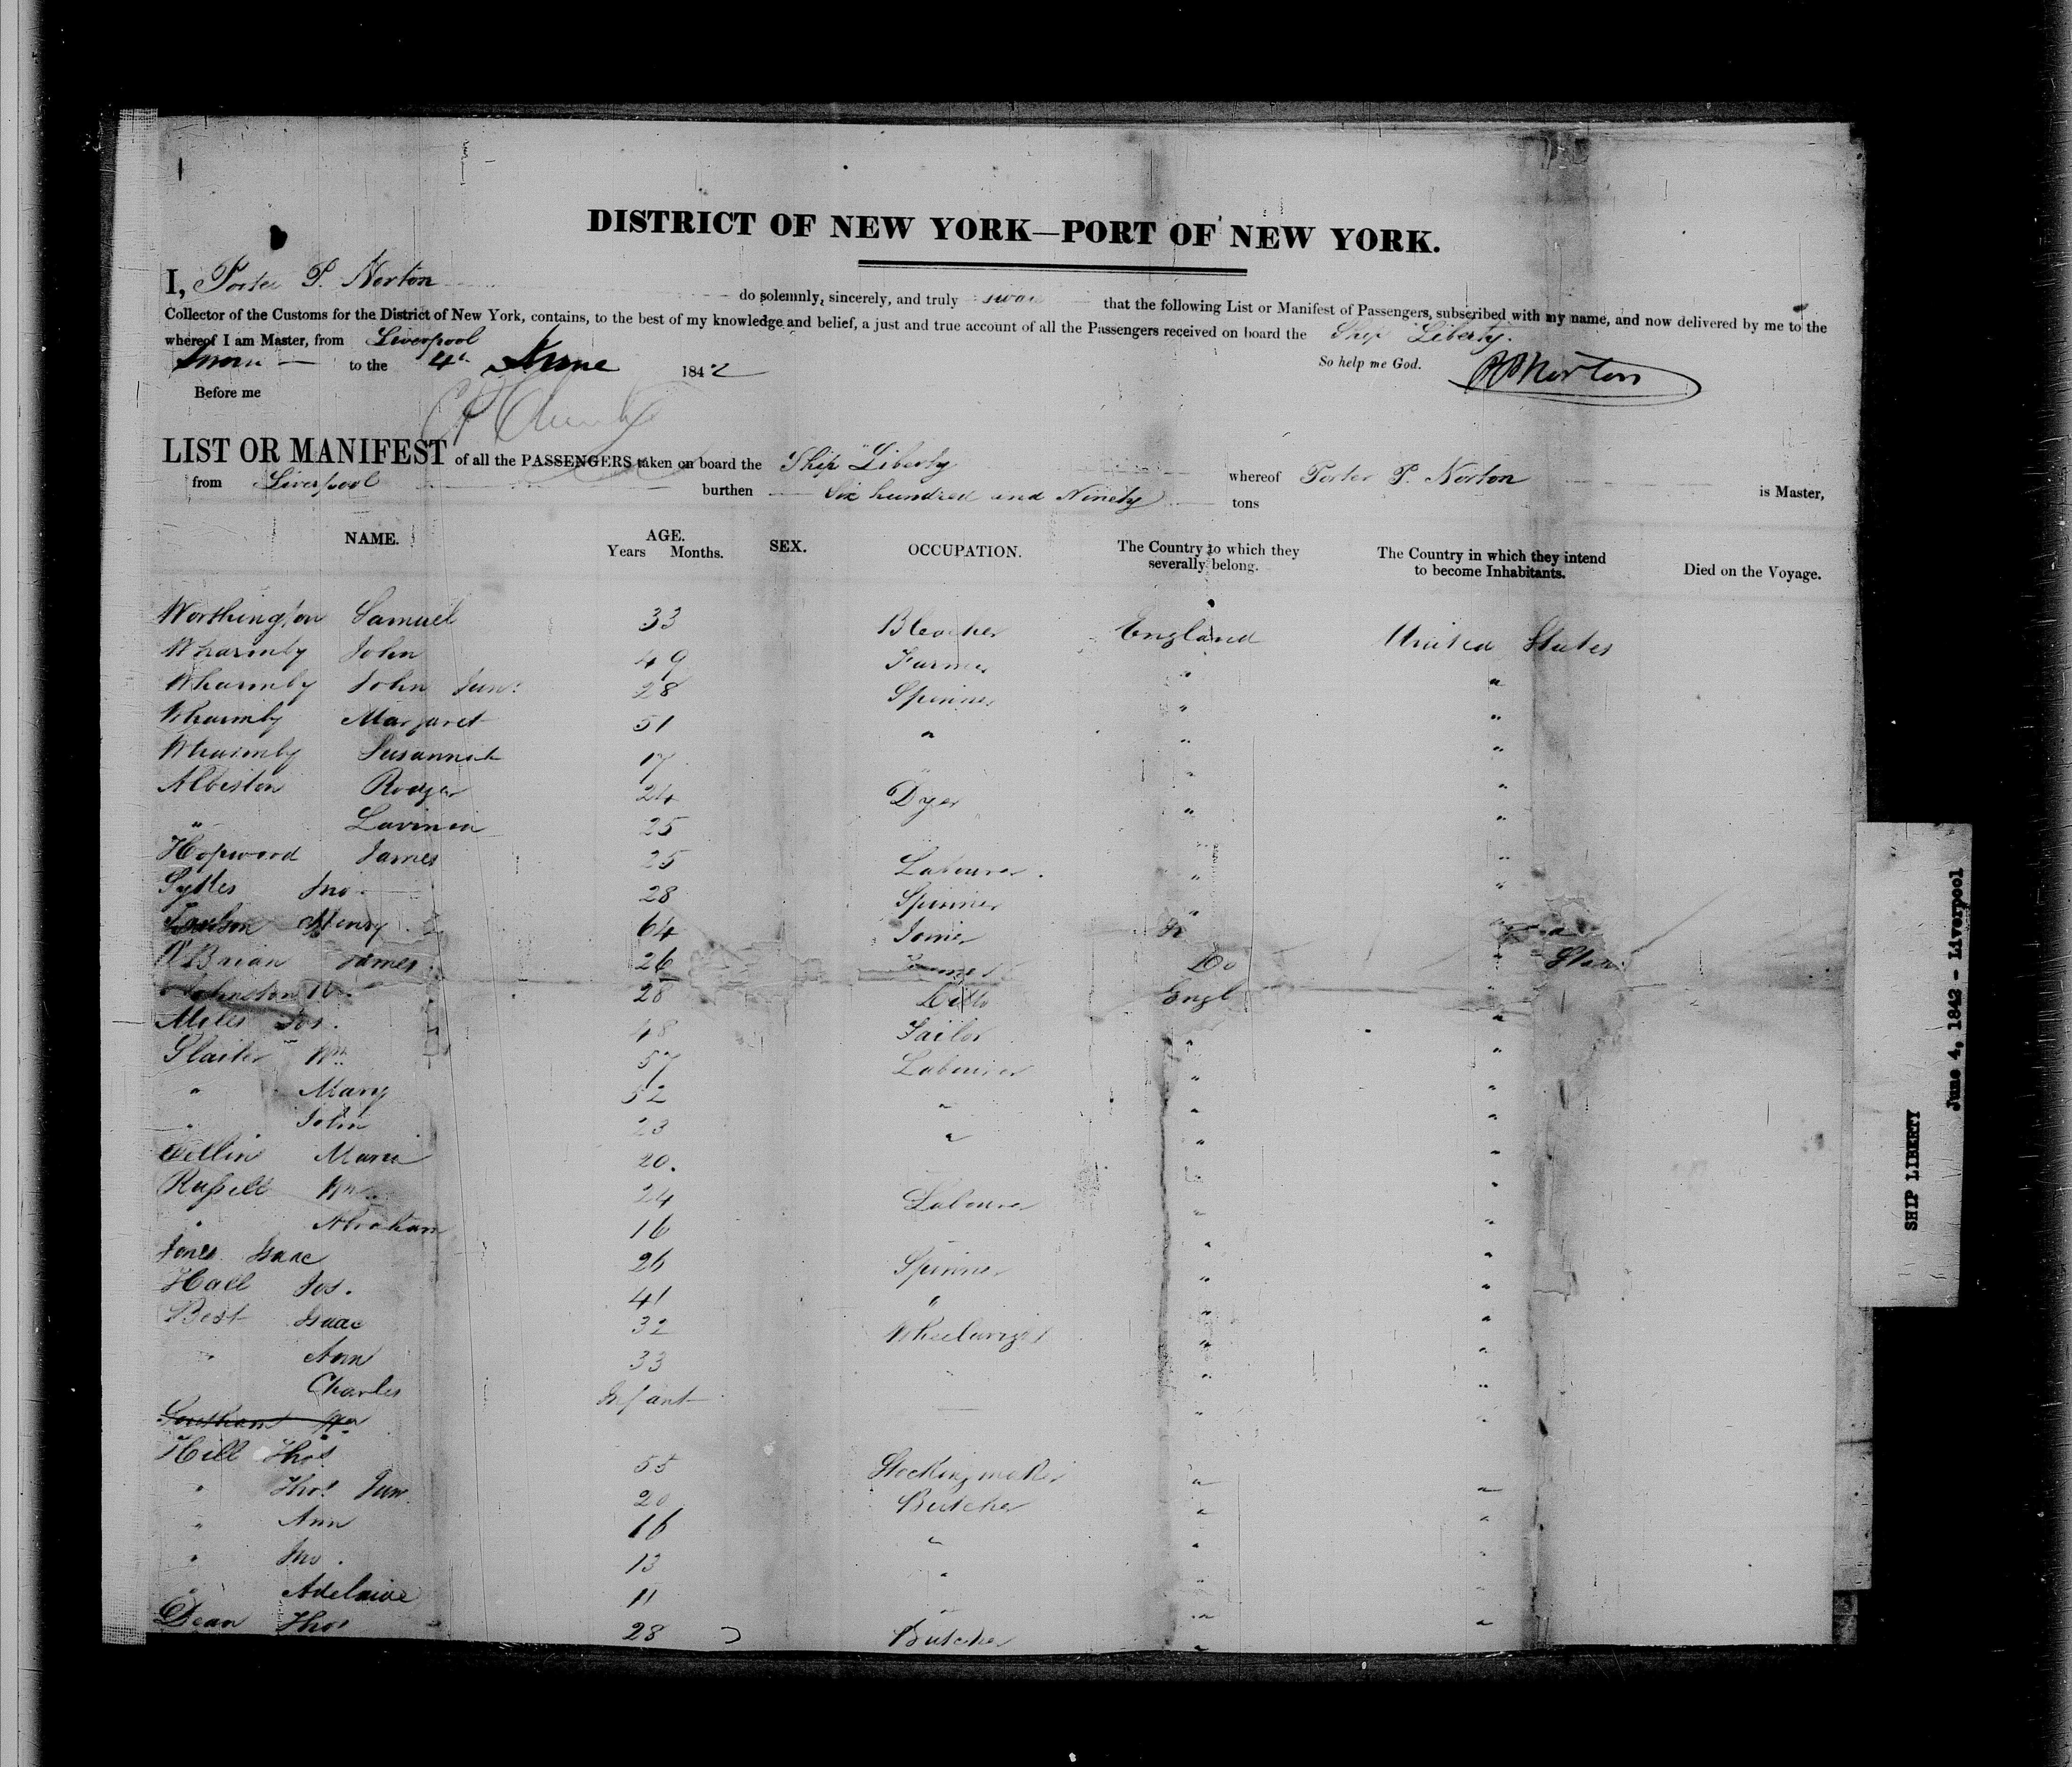 DISTRICT OF NEW YORK—PORT OF NEW YORK.
I, Porter P. Norton do solemnly, sincerely, and truly swear that the following List or Manifest of Passengers, subscribed with my name, and now delivered by me to the
Collector of the Customs for the District of New York, contains, to the best of my knowledge and belief, a just and true account of all the Passengers received on board the Ship Liberty.
whereof I am Master, from Liverpool
Sworn to the 4th June 1842 So help me God. PPNorton
Before me
LIST OR MANIFEST of all the PASSENGERS taken on board the Ship "Liberty whereof Porter P. Norton is Master,
from Liverpool burthen Six hundred and Ninety tons
NAME. AGE. Years Months. SEX. OCCUPATION. The Country to which they severally belong. The Country in which they intend to become Inhabitants. Died on the Voyage.
Worthington Samuel 33 Bleacher England United States
Wharmby John 49 Farmer " "
Wharmby John Junr 28 Spinner " "
Wharmby Margaret 51 " " "
Wharmby Susannah 17 " "
Albiston Rodger 24 Dyer " "
" Lavinia 25 " "
Hopwood James 25 Labourer. " "
Jno. 28 Spinner " "
Henry 64 Joiner
O'Brian James 26 Do
Johnston 28 Ditto Engl "
Miles Jos. 48 Tailor " "
Slaiter Wm 57 Labourer " "
" Mary 52 " " "
" John 23 " " "
Maria 20. "
Russell Wm. 24 Labourer " "
" Abraham 16 " "
Jones Isaac 26 Spinner " "
Hall Jos. 41 " " "
Best Isaac 32 Wheelwright " "
" Ann 33 " "
Charles Infant " "
Hill Thos 55 Stocking maker " "
" Thos Junr 20 Butcher " "
" Ann 16 " " "
" Jno. 13 " " "
" Adelaide 11 " " "
Dean Thos 28 Butcher "
SHIP LIBERTY
June 4, 1842 - Liverpool